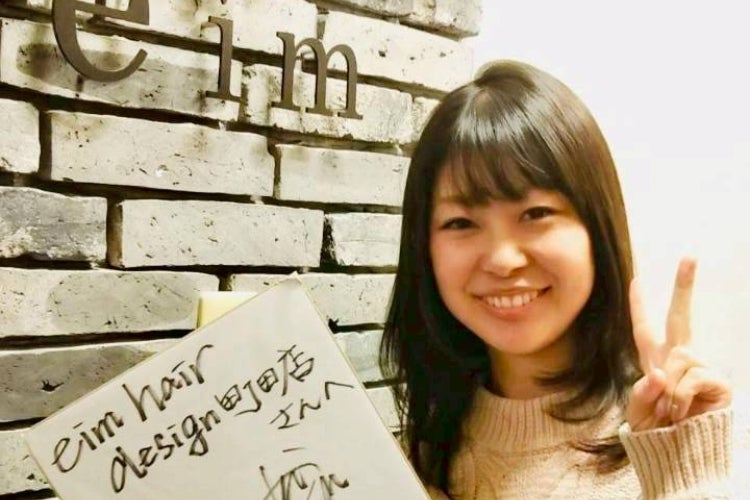 eim
eim hair
design町田店
さんへ